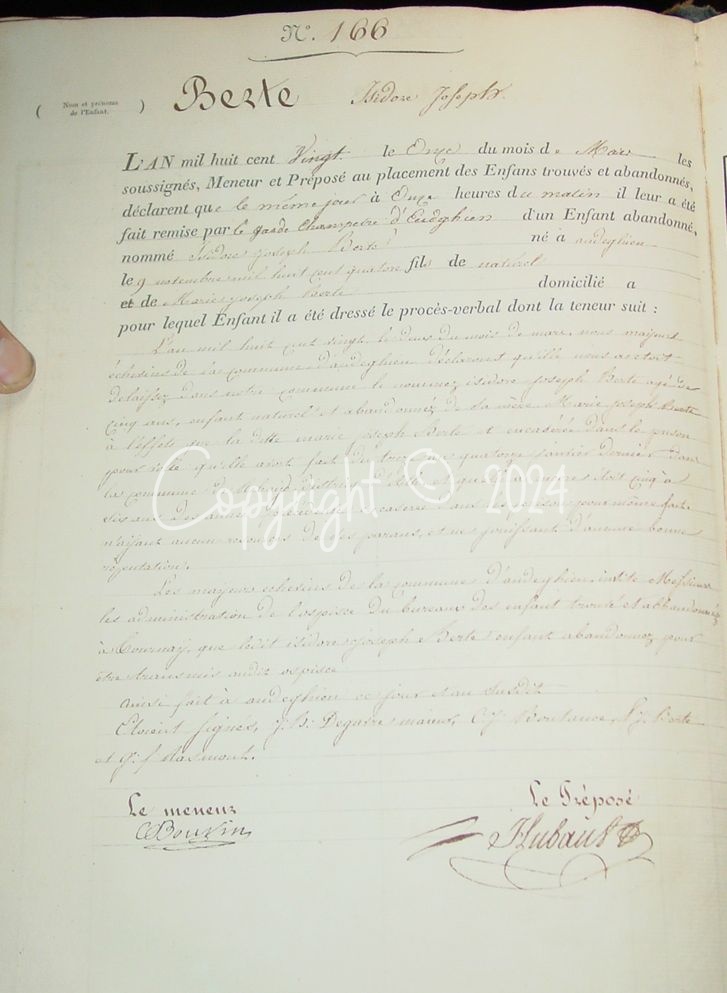 N.° 166
( Nom et prénoms de l'Enfant. ) Berte Isidore Joseph.
L'AN mil huit cent Vingt le Onze du mois de Mars les
soussignés, Meneur et Préposé au placement des Enfans trouvés et abandonnés,
déclarent que le même jour à Onze heures du matin il leur a été
fait remise par le garde Champetre d'Audeghien d'un Enfant abandonné,
nommé Isidore Joseph Berte né à audeghien
le 9 novembre mil huit cent quatorze fils de naturel
et de Marie Joseph Berte domicilié a
pour lequel Enfant il a été dressé le procès-verbal dont la teneur suit :
L'an mil huit cent vingt le deux du mois de mars, nous majeurs
échesins de la commune d'audeghien déclarons qu'ille nous as etoit
delaissez dans notre commune le nommez isidore Joseph Berte agé de
cinq ans, enfant naturel et abandonnéz de sa mère Marie Joseph Berte
à l'effete que la ditte marie joseph Berte et encasérée dans le prison
pour vole qu'elle avoit fait de trois quatorze janvier dernier dans
la commune district d'Ath et que il a encore etoit cinq à
six ans dans la prison pour même fait
n'aijant aucun resources de ses parans, et ne jouissant d'aucune bonne
réputation.
Les majeurs echesins de la commune d'audeghien, invite Messieurs
les administration de l'ospisce du bureaux des enfant trouvé et abbandonnéz
à Tournaij, que ledit isidore Joseph Berte enfant abandonnez pour
être transmis audit ospisce
ainsi fait à audeghien ce jour et an susdit
Etoient signés, J. B. Degavre maieur, C. J. Boutance, N. J. Berte
et f Hasmont.
Le meneur Le Préposé
Bouvin Hubault
Copyright © 2024